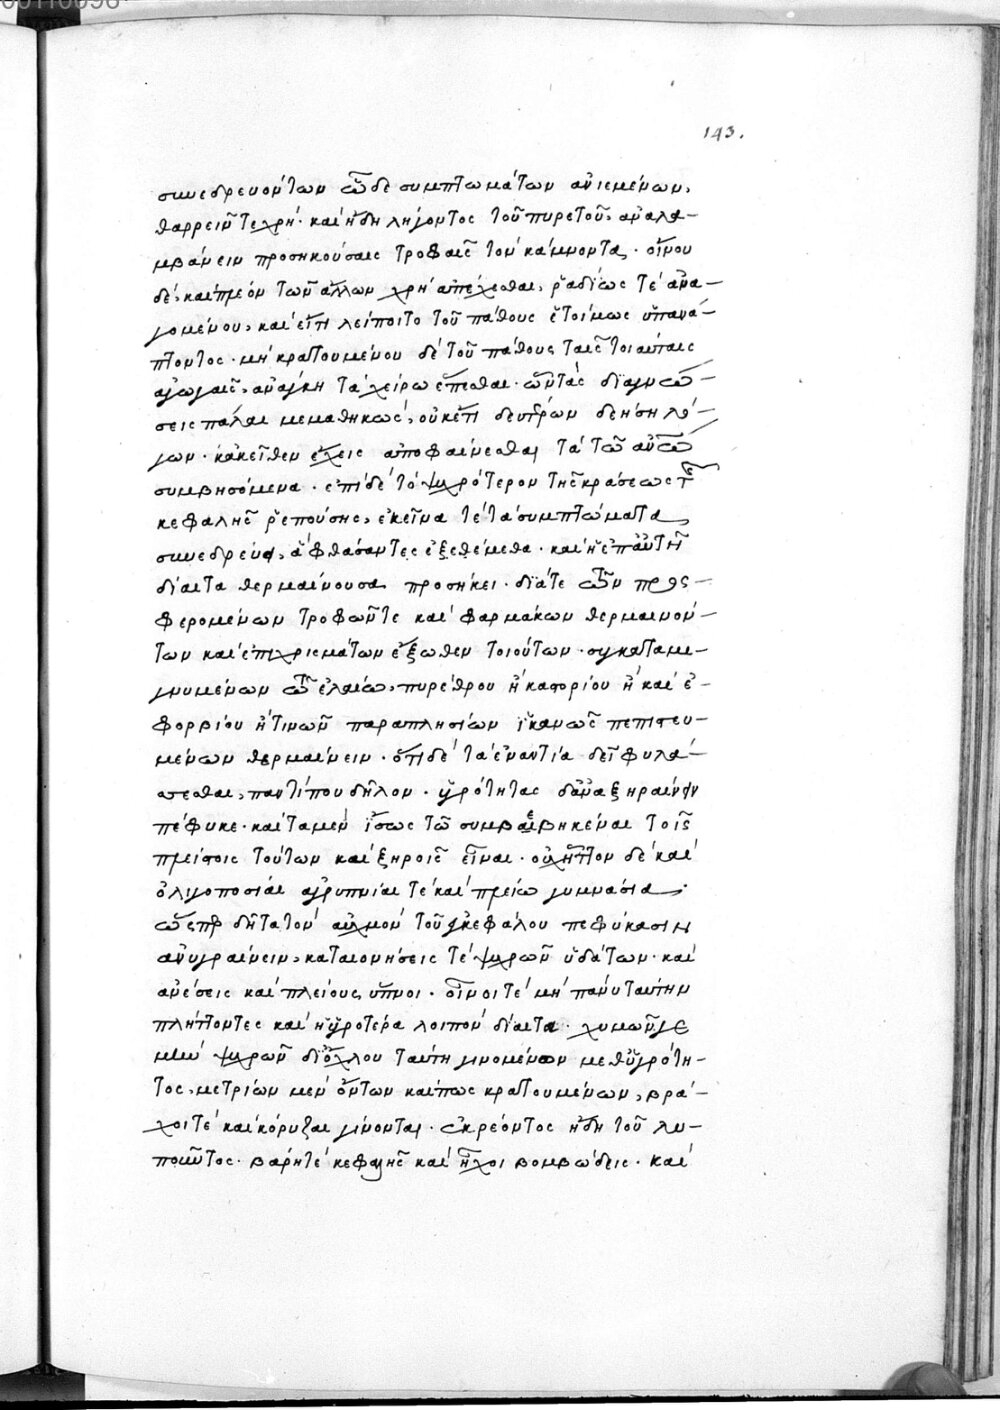 00110098
143.
συνεδρευόντων ὧδε συμπτωμάτων ἀνιεμένων,
θαρρεῖν τε χρή· καὶ ἤδη λήγοντος τοῦ πυρετοῦ, ἀναλα-
μβάνειν προσηκούσαις τροφαῖς τὸν κάμνοντα· οἴνου
δὲ, καὶ πλέον τῶν ἄλλων χρὴ ἀπέχεσθαι, ῥαδίως τὲ ἀνα-
γομένου, καὶ εἴτι λείποιτο τοῦ πάθους ἑτοίμως ὑπανά-
πτοντος· μὴ κρατουμένου δὲ τοῦ πάθους ταῖς τοιαύταις
ἀγωγαῖς, ἀνάγκη τὰ χείρω ἕπεσθαι· ὧν τὰς διαγνώ-
σεις πάλαι μεμαθηκώς, οὐκέτι δευτέρων δεήσῃ λό-
γων· κἀκεῖθεν ἔχεις ἀποφαίνεσθαι τὰ τῶ ἀνῶ
συμβησόμενα· ἐπὶ δὲ τὸ ψυχρότερον τῆς κράσεως τῆς
κεφαλῆς ῥεπούσης, ἐκεῖνα τὲ τὰ συμπτώματα
συνεδρεύει, ἃ φθάσαντες ἐξεθέμεθα· καὶ ἡ ἐπ' αὐτῇ
δίαιτα θερμαίνουσα προσήκει· διά τε τῶν προς-
φερομένων τροφῶν τε καὶ φαρμάκων θερμαινόν-
των καὶ ἐπιχρισμάτων ἔξωθεν τοιούτων· συγκαταμι-
γνυμένων τῶ ἐλαίω, πυρέθρου ἢ καστορίου ἢ καὶ εὐ-
φορβίου ἤ τινων παραπλησίων ἱκανῶς πεπιστευ-
μένων θερμαίνειν· ὅτι δὲ τὰ ἐναντία δεῖ φυλά-
ττεσθαι, παντί που δῆλον· ὑγρότητας δ' ἀναξηραίνειν
πέφυκε· καὶ τὰ μὲν ἴσως τῶ συμβεβηκέναι τοῖς
πλείστοις τούτων καὶ ξηροῖς εἶναι· οὐχ ἧττον δὲ καὶ
ὀλιγοποσίαι ἀγρυπνίαι τὲ καὶ πλείω γυμνάσια·
ὥσπερ δῆτα τὸν αὐχμὸν τοῦ ἐγκεφάλου πεφύκασιν
ἀνυγραίνειν, καταιονήσεις τὲ ψυχρῶν ὑδάτων· καὶ
ἀνέσεις καὶ πλείους ὕπνοι· οἶνοι τὲ μὴ πάνυ ταύτην
πλήττοντες καὶ ἡ ὑγροτέρα λοιπὸν δίαιτα· χυμῶν γε
μὴν ψυχρῶν δι' ὄχλου ταύτῃ γινομένων μεθ' ὑγρότη-
τος, μετρίων μὲν ὄντων καί πως κρατουμένων, βρά-
χοι τὲ καὶ κόρυζαι γίνονται· ἐκρέοντος ἤδη τοῦ λυ-
ποῦντος· βάρη τὲ κεφαλῆς καὶ ἦχοι βομβώδεις· καὶ